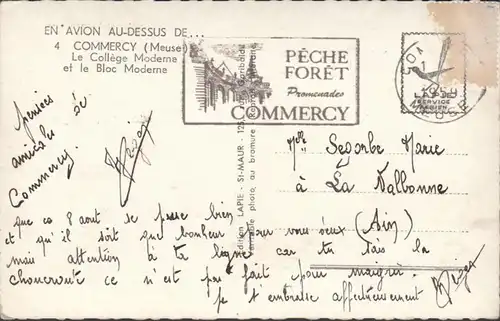 EN AVION AU-DESSUS DE...
4 COMMERCY (Meuse)
Le Collège Moderne
et le Bloc Moderne
PÊCHE
FORÊT
Promenades
COMMERCY
LAPIE
SERVICE
AERIEN
MEUSE
Edition LAPIE - St-MAUR - 125,
Véritable photo au bromure
pensées
amicales de
Commercy.
Roger
Mlle Segorbe Marie
à La Valbonne
(Ain)
que ce 8 aout se passe bien
et qu'il soit que bonheur pour vous deux
mais attention à ta ligne car tu sais la
choucroute ce n'est pas fait pour maigrir.
je t'embrasse affectueusement Roger